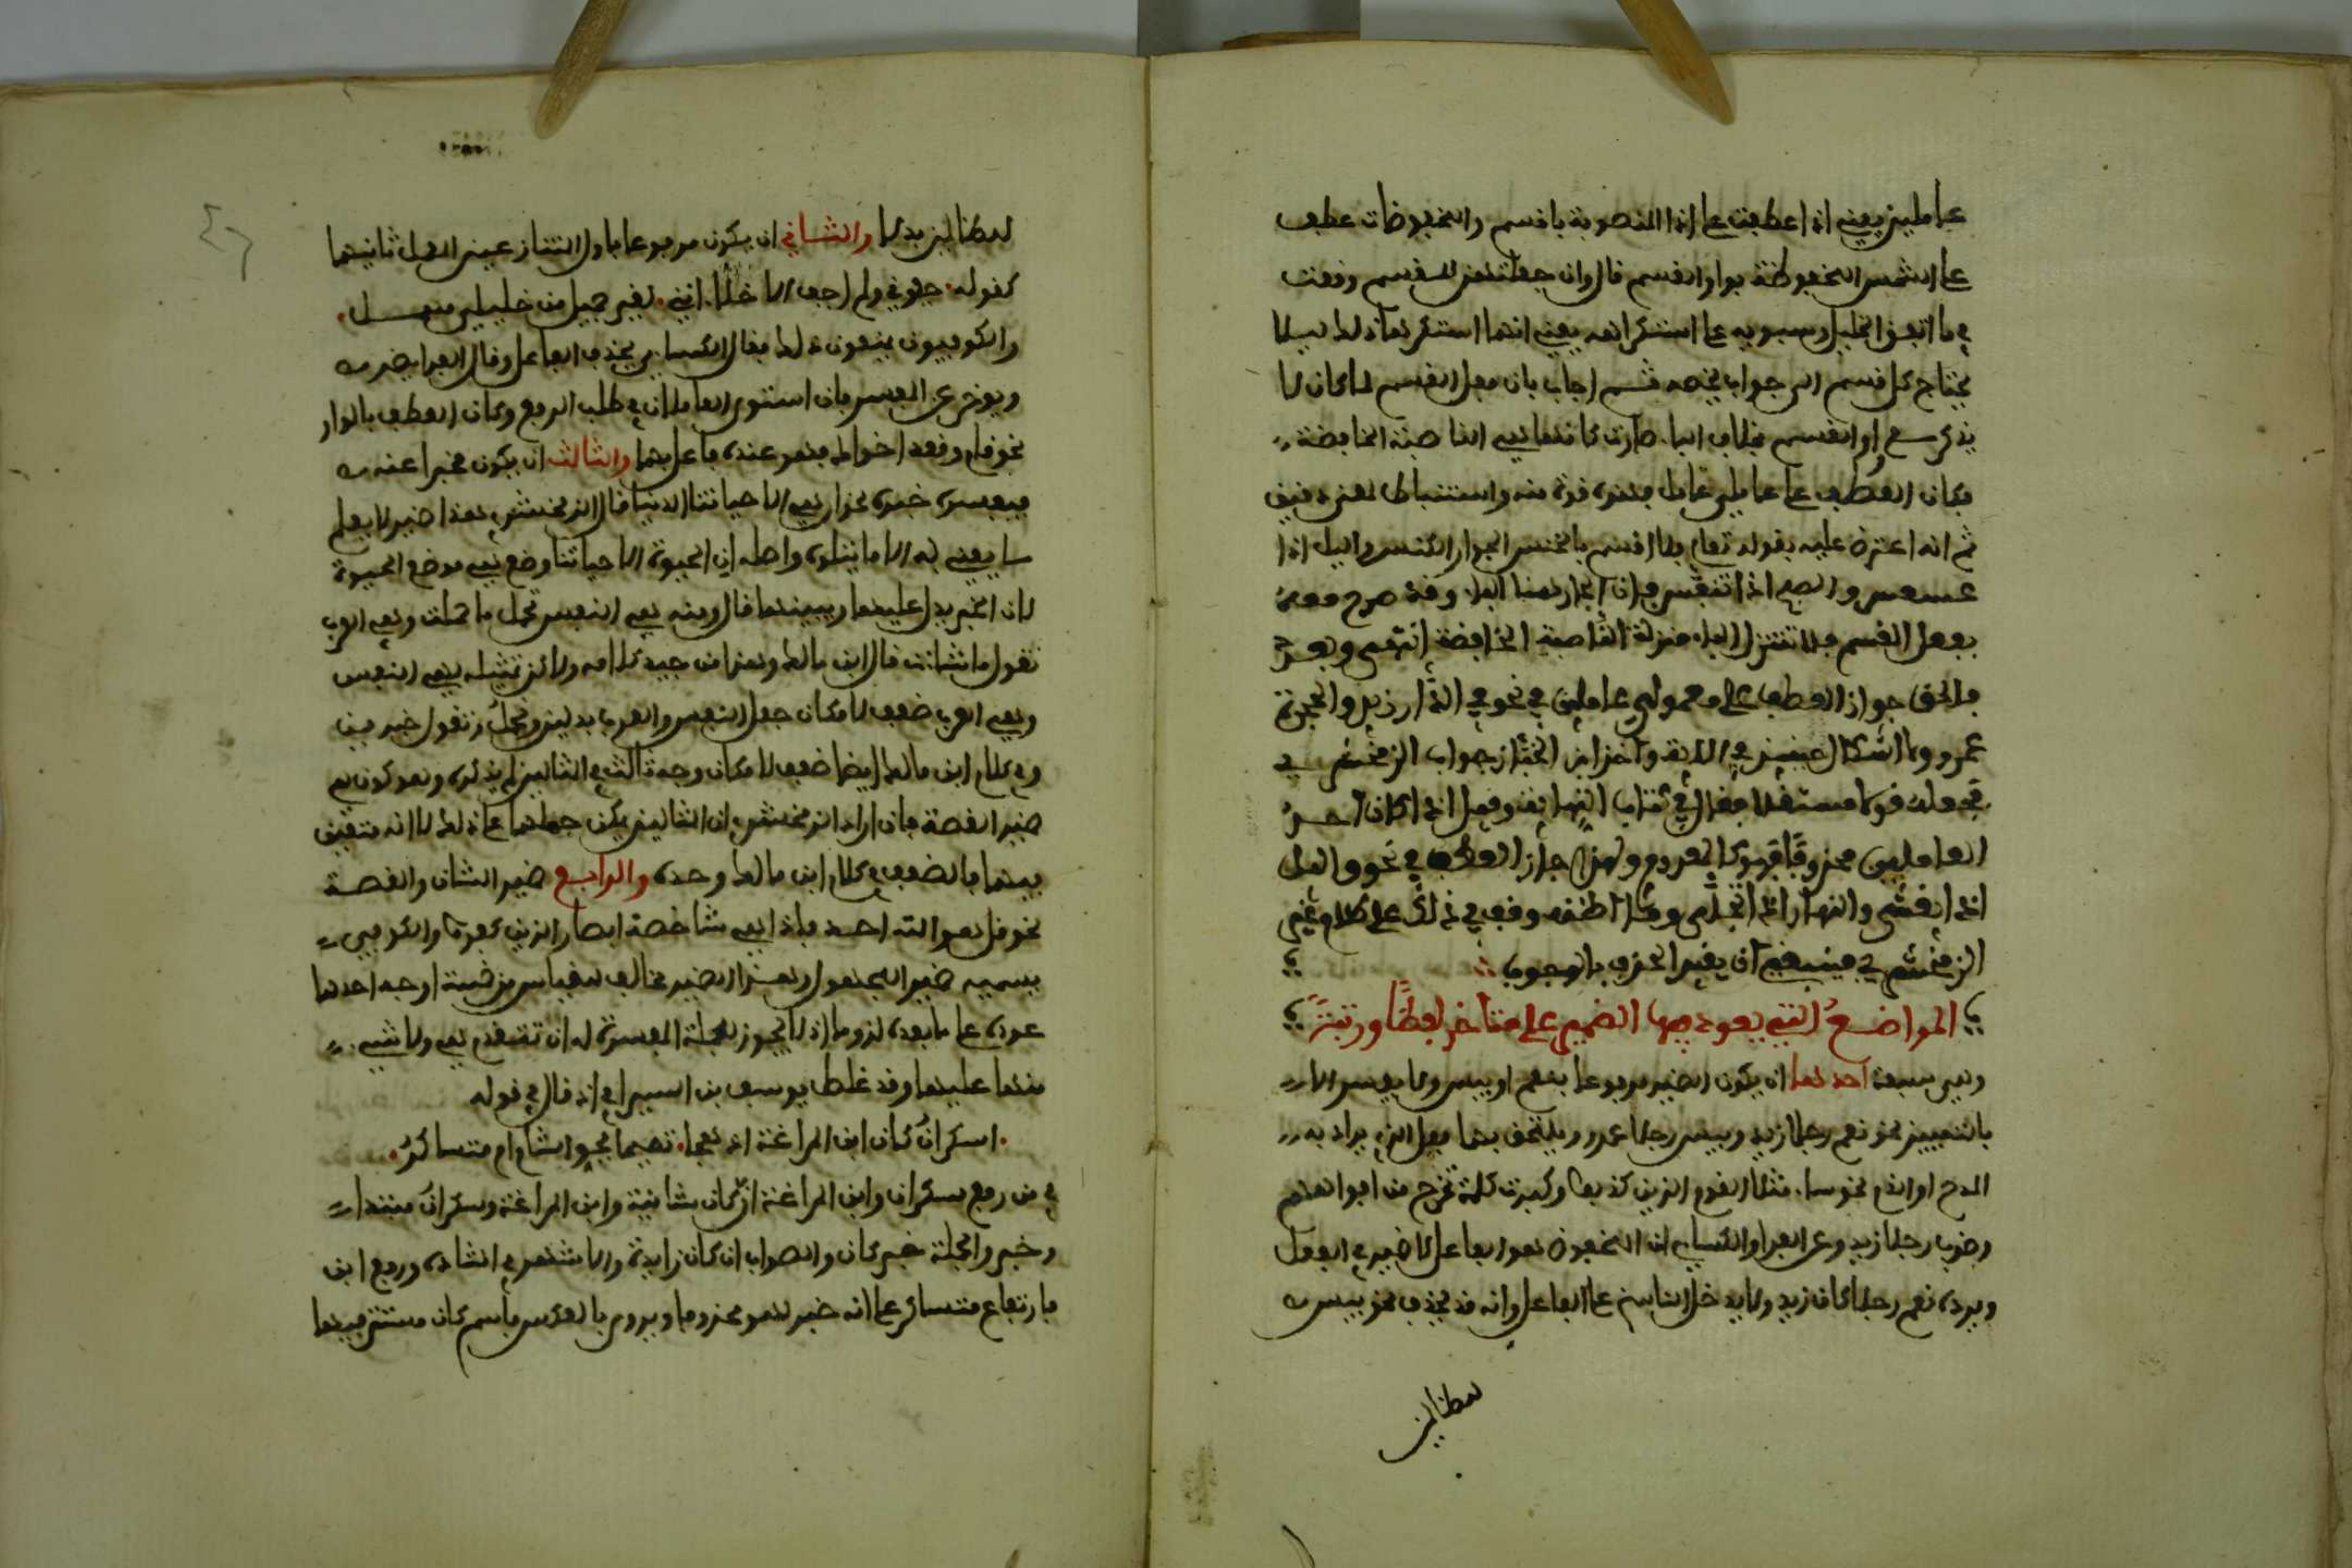 عاملين يعني اذا عطفت على اذا المنصوبة باقسم والمخفوضات عطف
على الشمس المخفوظة بواو القسم قال وان جعلتهن للقسم وقعت
في ما اتفق الخليل وسيبويه على استكراهه يعني انهما استكرها ذلك ليلا
يحتاج كل قسم الى جواب يخصه ثم اجاب بان فعل القسم لما كان لا
يذكر مع واو القسم بخلاف الباء صارت كانها هي الناصبة الخافضة
فكان العطف على معمولي عامل وهذه قوة منه واستنباط لمعنى دقيق
ثم انه اعترض عليه بقوله تعالى فلا اقسم بالخنس الجوار الكنس واليل اذا
عسعس والصبح اذا تنفس فان الجار هنا الباء وقد صرح معه
بفعل القسم فلا تتنزل الباء منزلة الناصبة الخافضة انتهى وبعد
فالحق جواز العطف على معمولي عاملين في نحو في الدار زيد والحجرة
عمرو ولا اشكال حينئذ في الاية واخذ ابن الخباز جواب الزمخشري
فجعله قولا مستقلا فقال في كتاب النهاية وقيل اذا كان احد
العاملين محذوفا فهو كالمعدوم ولهذا جاز العطف في نحو واليل
اذا يغشى والنهار اذا تجلى وما اظنه وقف في ذلك على كلام غير
الزمخشري فينبغي ان يقيد الحذف بالوجوب
المواضع التي يعود فيها الضمير على متاخر لفظا ورتبة
وهي سبعة احدها ان يكون الضمير مرفوعا بنعم او بيس ولا يفسر الا
بالتمييز نحو نعم رجلا زيد وبيس رجلا عمرو ويلتحق بهما فعل الذي يراد به
المدح او الذم نحو ساء مثلا القوم الذين كذبوا وكبرت كلمة تخرج من افواههم
وضرب رجلا زيد وعن الفراء والكساي ان المخفوض هو الفاعل لا ضمير في الفعل
ويرده نعم رجلا كان زيد ولا يدخل الناسخ على الفاعل وانه قد يحذف نحو بيس
للظالمين
للظالمين بدلا والثاني ان يكون مرفوعا باول المتنازعين المعمل ثانيهما
كقوله جفوني ولم اجف الاخلاء انني لغير جميل من خليلي مهمل
والكوفيون يمنعون ذلك فقال الكسائي يحذف الفاعل وقال الفراء يضمر
ويوخر عن المفسر فان استوى العاملان في طلب الرفع وكان العطف بالواو
نحو قام وقعد اخواك فهو عنده فاعل بهما والثالث ان يكون مخبرا عنه
فيفسره خبره نحو ان هي الا حياتنا الدنيا قال الزمخشري هذا ضمير لا يعلم
ما يعني به الا ما يتلوه واصله ان الحيوة الا حياتنا وضع هي موضع الحيوة
لان الخبر يدل عليها ويبينها قال ومنه هي النفس تحمل ما حملت وهي العرب
تقول ما شاءت قال ابن مالك وهذا من جيد كلامه ولاكن تمثيله بهي النفس
وهي العرب ضعيف لامكان جعل النفس والعرب بدلين وتحمل وتقول خبرين
وفي كلام ابن مالك ايضا ضعف لامكان وجه ثالث في المثالين لم يذكره وهو كون هي
ضمير القصة فان اراد الزمخشري ان المثالين يمكن حملهما على ذلك لا انه متعين
فيهما فالضعف في كلام ابن مالك وحده والرابع ضمير الشان والقصة
نحو قل هو الله احد فاذا هي شاخصة ابصار الذين كفروا والكوفي
يسميه ضمير المجهول وهذا الضمير مخالف للقياس من خمسة اوجه احدها
عوده على ما بعده لزوما اذ لا يجوز للجملة المفسرة له ان تتقدم هي ولا شيء
منها عليها وقد غلط يوسف بن السيرافي اذ قال في قوله
اسكران كان ابن المراغة اذ هجا تميما بجو الشام ام متساكر
في من رفع سكران وابن المراغة ان كان شانية وابن المراغة وسكران مبتدا
وخبر والجملة خبر كان والصواب ان كان زايدة والاشهر في انشاده ورفع ابن
فارتفاع متساكر على انه خبر لهو محذوفا ويروى بالعكس فاسم كان مستتر فيها